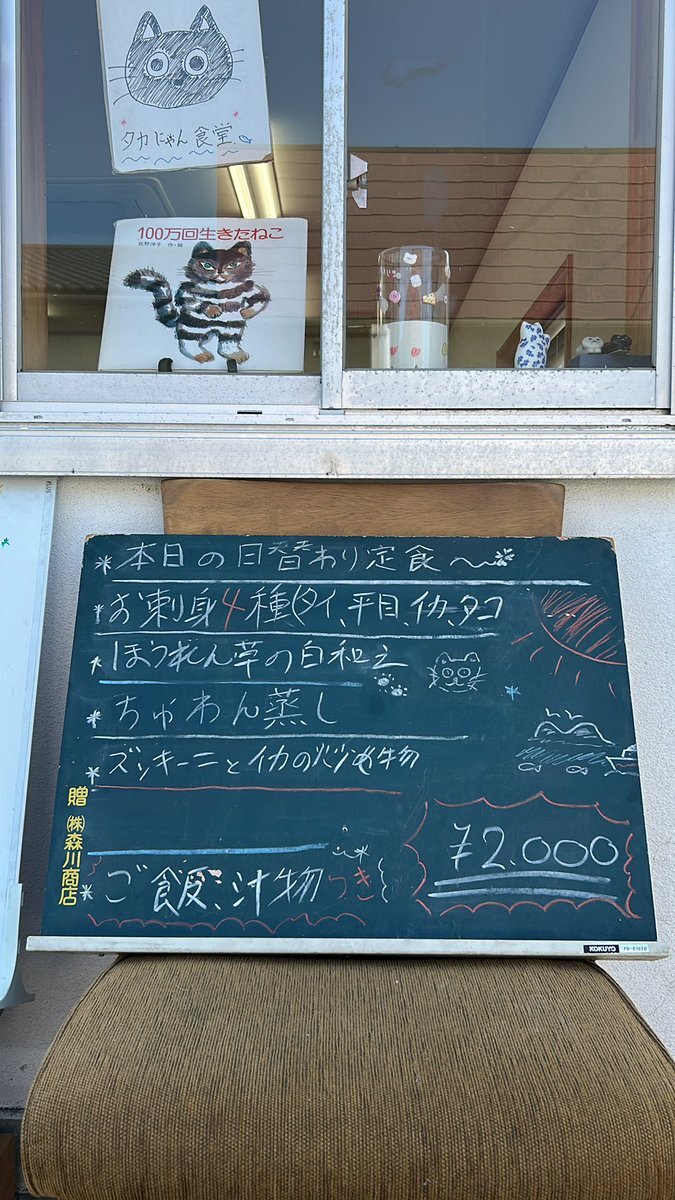 タカにゃん食堂
100万回生きたねこ
佐野洋子 作・絵
本日の日替わり定食〜
お刺身4種(タイ、平目、イカ、タコ
ほうれん草の白和え
ちゃわん蒸し
ズッキーニとイカの炒め物
ご飯、汁物つき
¥2.000
贈 ㈱森川商店
KOKUYO